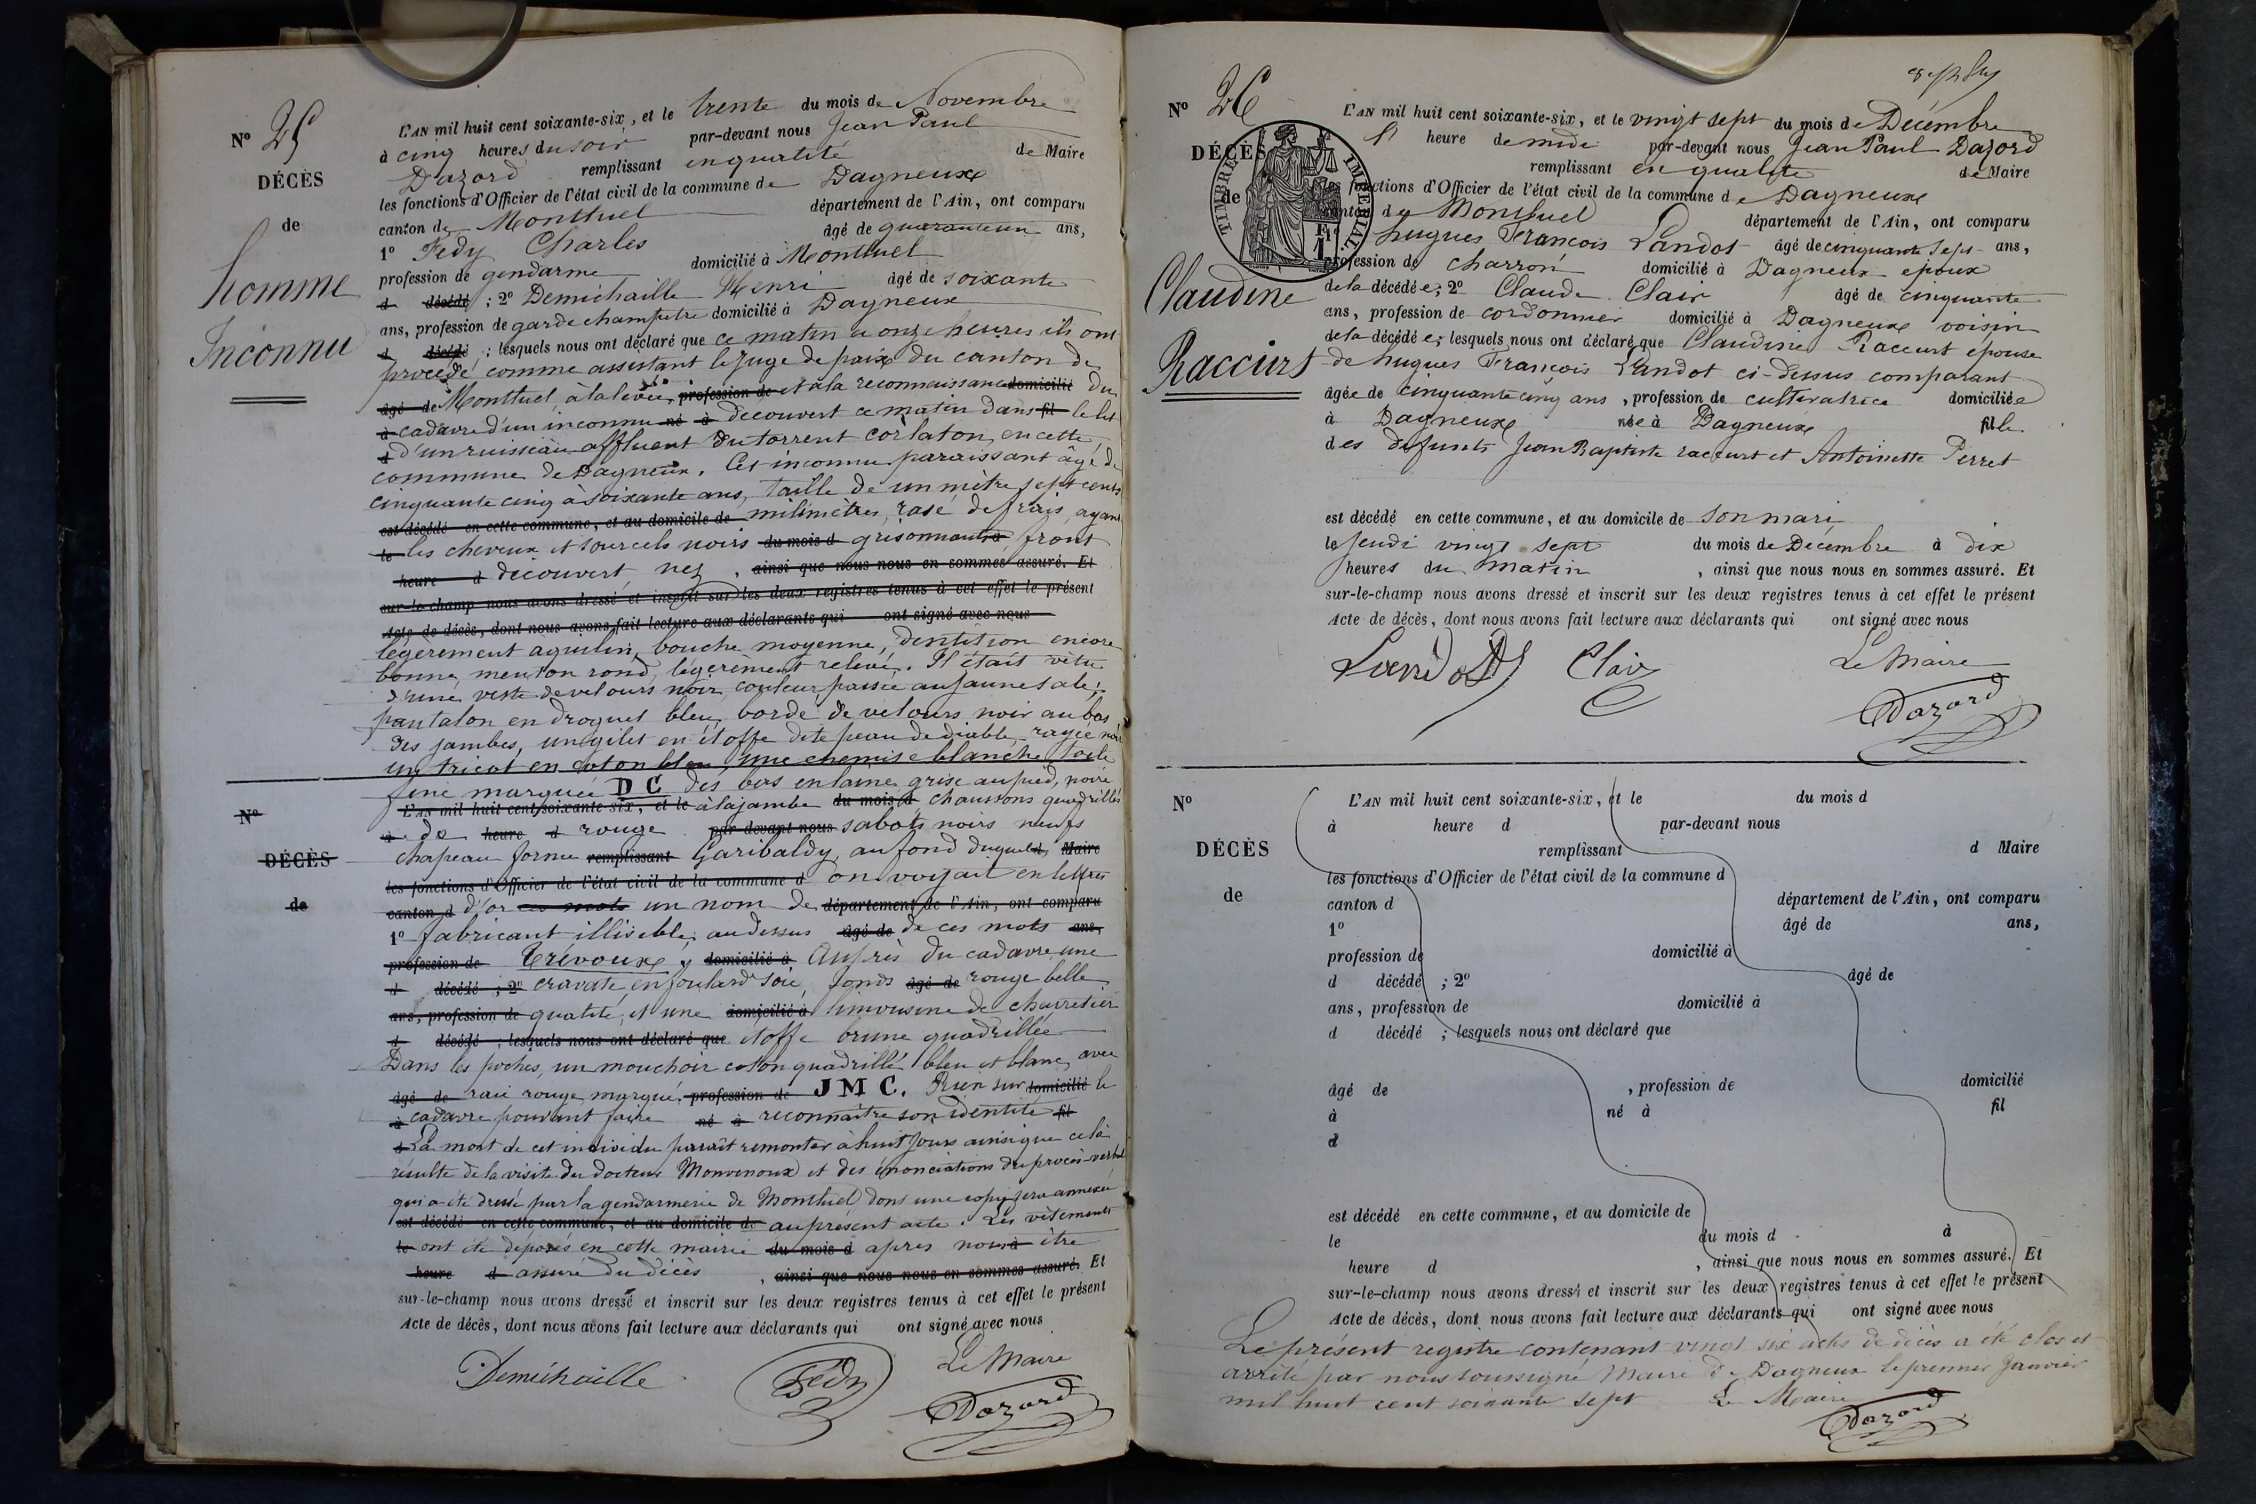 N° 25
DÉCÈS
de
homme
Inconnu
L'AN mil huit cent soixante-six, et le trente du mois de Novembre
à cinq heures du soir par-devant nous Jean Paul
Dazord remplissant en qualité de Maire
les fonctions d'Officier de l'état civil de la commune de Dagneux
canton de Montluel département de l'Ain, ont comparu
1° Fedy Charles âgé de quarante un ans,
profession de gendarme domicilié à Montluel
d décédé ; 2° Demichaille Henri âgé de soixante
ans, profession de garde champetre domicilié à Dagneux
d décédé ; lesquels nous ont déclaré que ce matin a onze heures ils ont
procédé comme assistant le juge de paix du canton de
âgé de Montluel, à la levée profession de et à la reconnaissance domicilié du
à cadavre d'un inconnu né à découvert ce matin dans fil le lit
d d'un ruisseau affluent du torrent corlaton, en cette
commune de Dagneux. Cet inconnu paraissant âgé de
cinquante cinq à soixante ans, taille de un mètre sept cents
est décédé en cette commune, et au domicile de milimètres, rasé de frais, ayant
le les cheveux et sourcels noirs du mois d grisonnants à front
heure d découvert, nez, ainsi que nous nous en sommes assuré. Et
sur-le-champ nous avons dressé et inscrit sur les deux registres tenus à cet effet le présent
Acte de décès, dont nous avons fait lecture aux déclarants qui ont signé avec nous
légèrement aquilin, bouche moyenne, dentition encore
bonne, menton rond, légèrement relevé. Il était vêtu
d'une veste de velours noir, couleur passée au jaune sale;
pantalon en droguet bleu, bordé de velours noir au bas
des jambes, un gilet en étoffe dite peau de diable, rayée noir
un tricot en coton bleu, une chemise blanche toile
fine marquée D C des bas en laine grise au pied, noire
N°
DÉCÈS
de
L'AN mil huit cent soixante-six, et le à la jambe du mois d chaussons quadrillés
à de heure d rouge par-devant nous sabots noirs neufs
chapeau forme remplissant Garibaldy, au fond duquel d Maire
les fonctions d'Officier de l'état civil de la commune d on voyait en lettres
canton d d'or ces mots un nom de département de l'Ain, ont comparu
1° fabricant illisible, au dessus âgé de de ces mots ans,
profession de Trévoux, domicilié à Auprès du cadavre une
d décédé ; 2° cravate en foulard soie, fonds âgé de rouge belle
ans, profession de qualité, et une domicilié à limousine de charretier
d décédé ; lesquels nous ont déclaré que étoffe brune quadrillée
Dans les poches, un mouchoir coton quadrillé bleu et blanc, avec
âgé de raie rouge, marqué profession de J M C. Rien sur domicilié le
à cadavre pouvant faire né à reconnaître son identité fil
d La mort de cet individu parait remonter à huit jours ainsi que cela
résulte de la visite du docteur Monvenoux et des énonciations du procès-verbal
qui a été dressé par la gendarmerie de Montluel dont une copie sera annexée
est décédé en cette commune, et au domicile de au présent acte. Les vêtements
le ont été déposés en cette mairie du mois d apres nous à être
heure d assuré du décès, ainsi que nous nous en sommes assuré. Et
sur-le-champ nous avons dressé et inscrit sur les deux registres tenus à cet effet le présent
Acte de décès, dont nous avons fait lecture aux déclarants qui ont signé avec nous
Le Maire
Demichaille Fedy Dazord
N° 26
DÉCÈS
de
TIMBRE IMPERIAL
Claudine
Raccurt
L'AN mil huit cent soixante-six, et le vingt sept du mois de Décembre
heure de midi par-devant nous Jean Paul Dazord
remplissant en qualité de Maire
les fonctions d'Officier de l'état civil de la commune de Dagneux
canton de Montluel département de l'Ain, ont comparu
1° hugues François Landot âgé de cinquante sept ans,
profession de charron domicilié à Dagneux époux
de la décédée ; 2° Claude Clair âgé de cinquante
ans, profession de cordonnier domicilié à Dagneux voisin
de la décédée ; lesquels nous ont déclaré que Claudine Raccurt épouse
de hugues François Landot ci-dessus comparant
âgée de cinquante cinq ans, profession de cultivatrice domiciliée
à Dagneux née à Dagneux fille
des défunts Jean Baptiste raccurt et Antoinette Perret
est décédé en cette commune, et au domicile de son mari
le jeudi vingt sept du mois de Décembre à dix
heures du matin, ainsi que nous nous en sommes assuré. Et
sur-le-champ nous avons dressé et inscrit sur les deux registres tenus à cet effet le présent
Acte de décès, dont nous avons fait lecture aux déclarants qui ont signé avec nous
Landot Clair Le Maire
Dazord
N°
DÉCÈS
de
L'AN mil huit cent soixante-six, et le du mois d
à heure d par-devant nous
remplissant d Maire
les fonctions d'Officier de l'état civil de la commune d
canton d département de l'Ain, ont comparu
1° âgé de ans,
profession de domicilié à
d décédé ; 2° âgé de
ans, profession de domicilié à
d décédé ; lesquels nous ont déclaré que
âgé de , profession de domicilié
à né à fil
d
est décédé en cette commune, et au domicile de
le du mois d à
heure d , ainsi que nous nous en sommes assuré. Et
sur-le-champ nous avons dressé et inscrit sur les deux registres tenus à cet effet le présent
Acte de décès, dont nous avons fait lecture aux déclarants qui ont signé avec nous
Le présent registre contenant vingt six actes de décès a été clos et
arrêté par nous soussigné Maire de Dagneux le premier Janvier
mil huit cent soixante sept Le Maire
Dazord